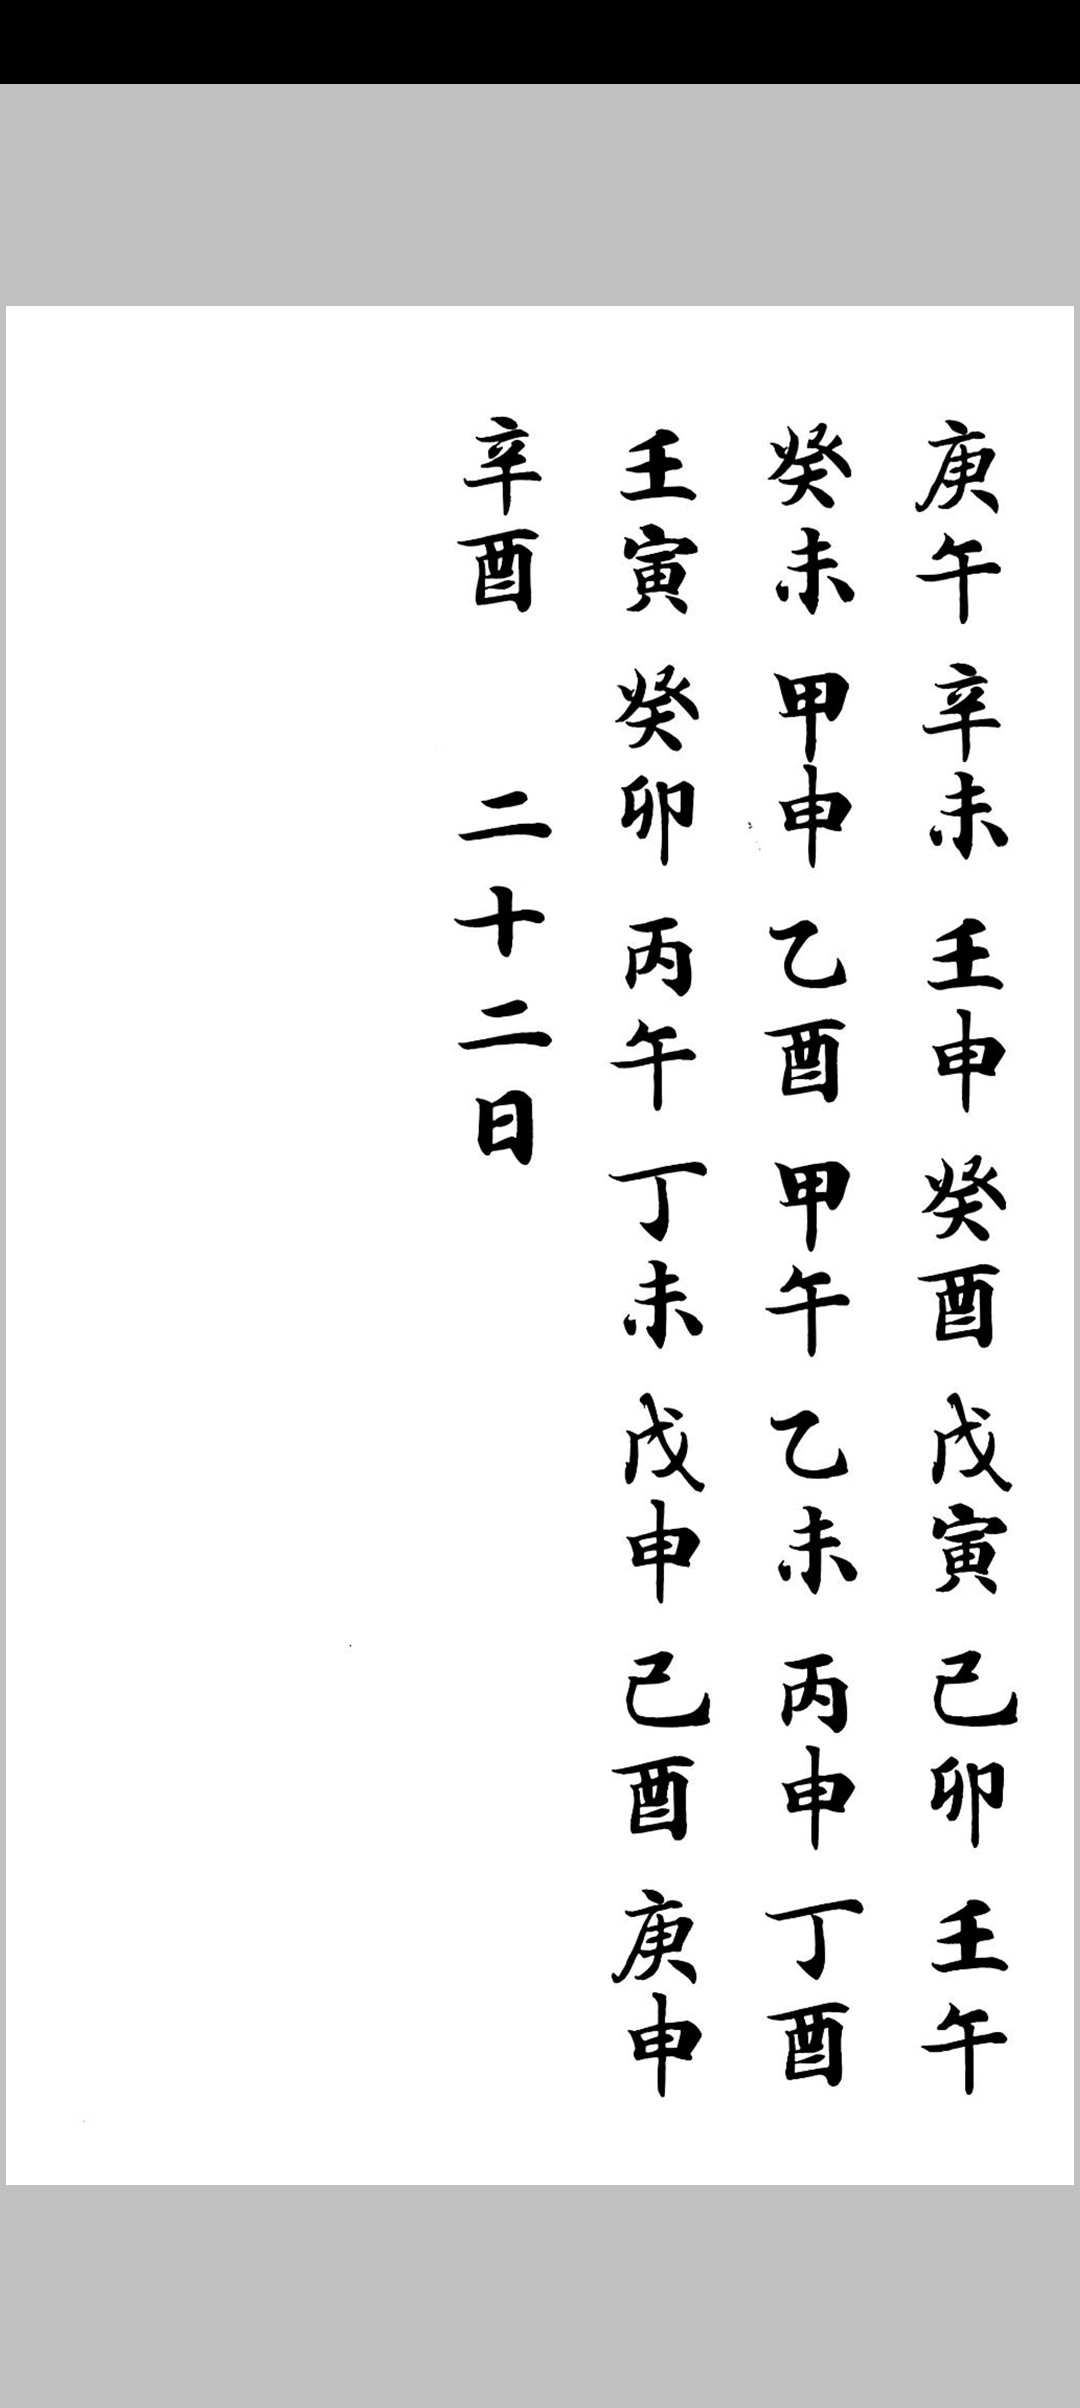 庚午 辛未 壬申 癸酉 戊寅 己卯 壬午
癸未 甲申 乙酉 甲午 乙未 丙申 丁酉
壬寅 癸卯 丙午 丁未 戊申 己酉 庚申
辛酉 二十二日